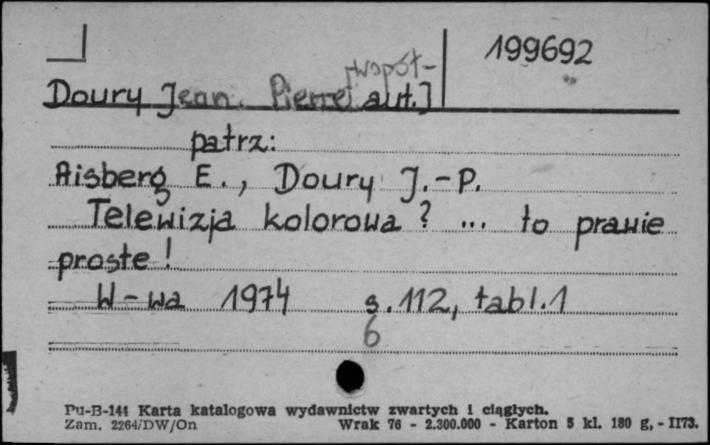 199692
współ-
Doury Jean. Pierre aut.]
patrz:
Aisberg E., Doury J.-P.
Telewizja kolorowa? ... to prawie
proste!
W-wa 1974 s. 112, tabl. 1
6
Pu-B-144 Karta katalogowa wydawnictw zwartych i ciągłych.
Zam. 2264/DW/On Wrak 76 - 2.300.000 - Karton 5 kl. 180 g, - II73.